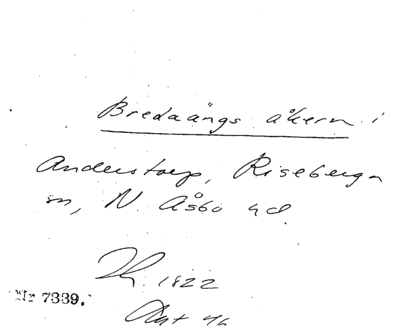 Bredaängs åkern i
Anderstorp, Riseberga
sn, N. Åsbo hd.
1822
Nr 7339.